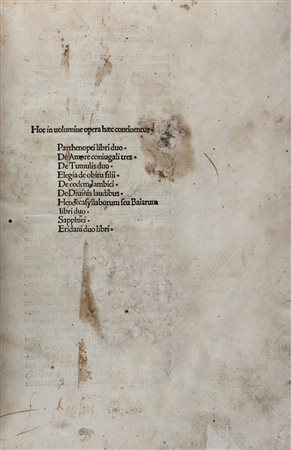 Hoc in uolumine opera hæc continentur.
Parthenopei libri duo.
De Amore coniugali tres.
De Tumulis duo.
Elegia de obitu filii.
De eodem Iambici.
De Diuinis laudibus.
Hendecasyllaborum seu Baiarum
libri duo.
Sapphici.
Eridani duo libri.